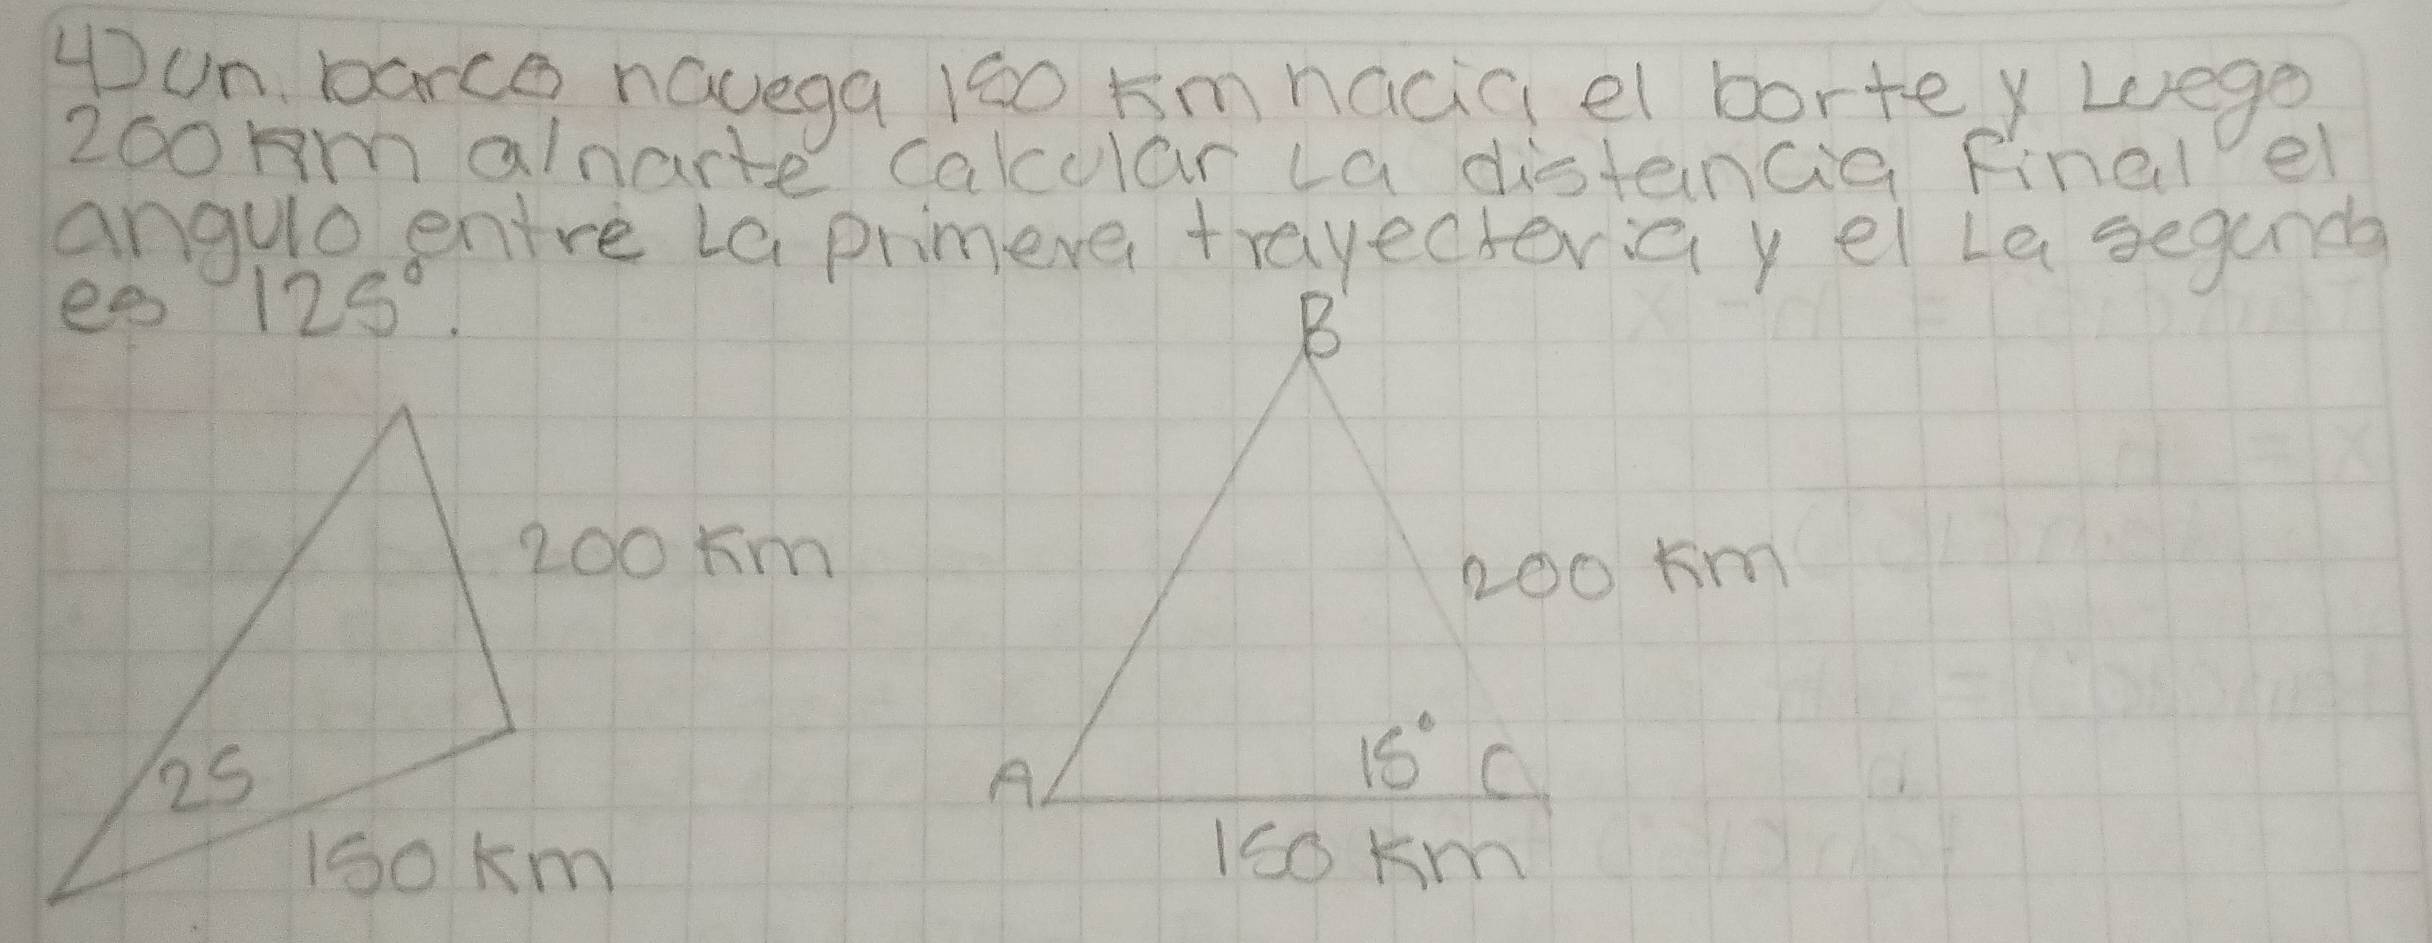 4) Un. barco navega 150 km hacia el borte y Luego
200 km al narte calcular La distancia Final el
angulo entre La primera trayectoria y el La segunda
es 125°.
B
200 km
200 km
25
15° C
A
150 km
150 km